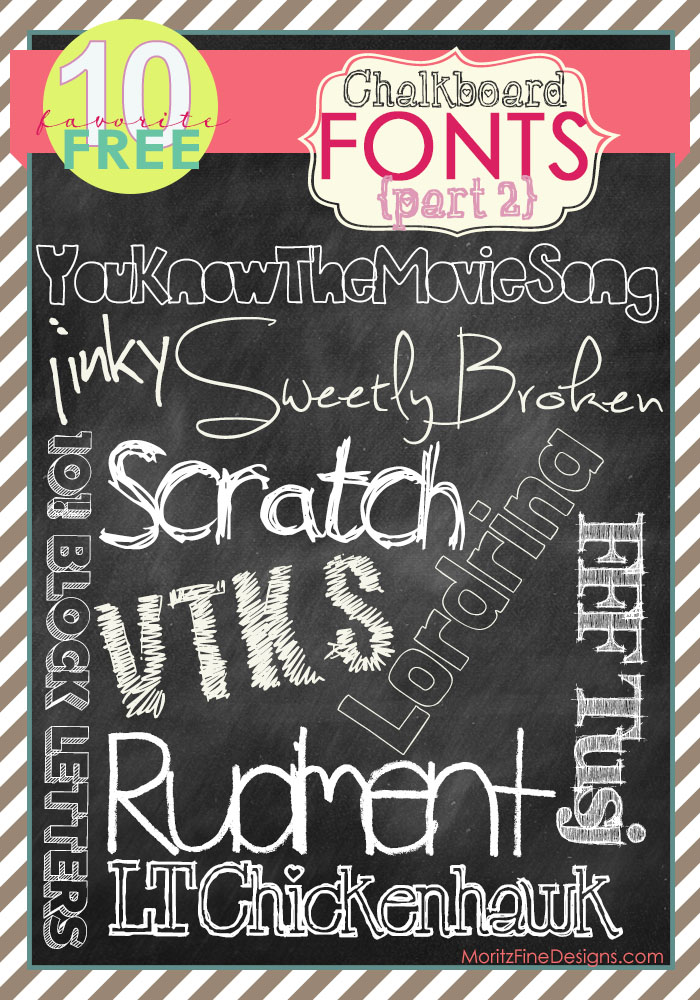 10
favorite
FREE
Chalkboard
FONTS
{part 2}
YouKnowTheMovieSong
jinky
Sweetly Broken
101! BLOCK LETTERS
Scratch
Lordrina
VTKS
FFF Tusj
Rudiment
LT Chickenhawk
MoritzFineDesigns.com